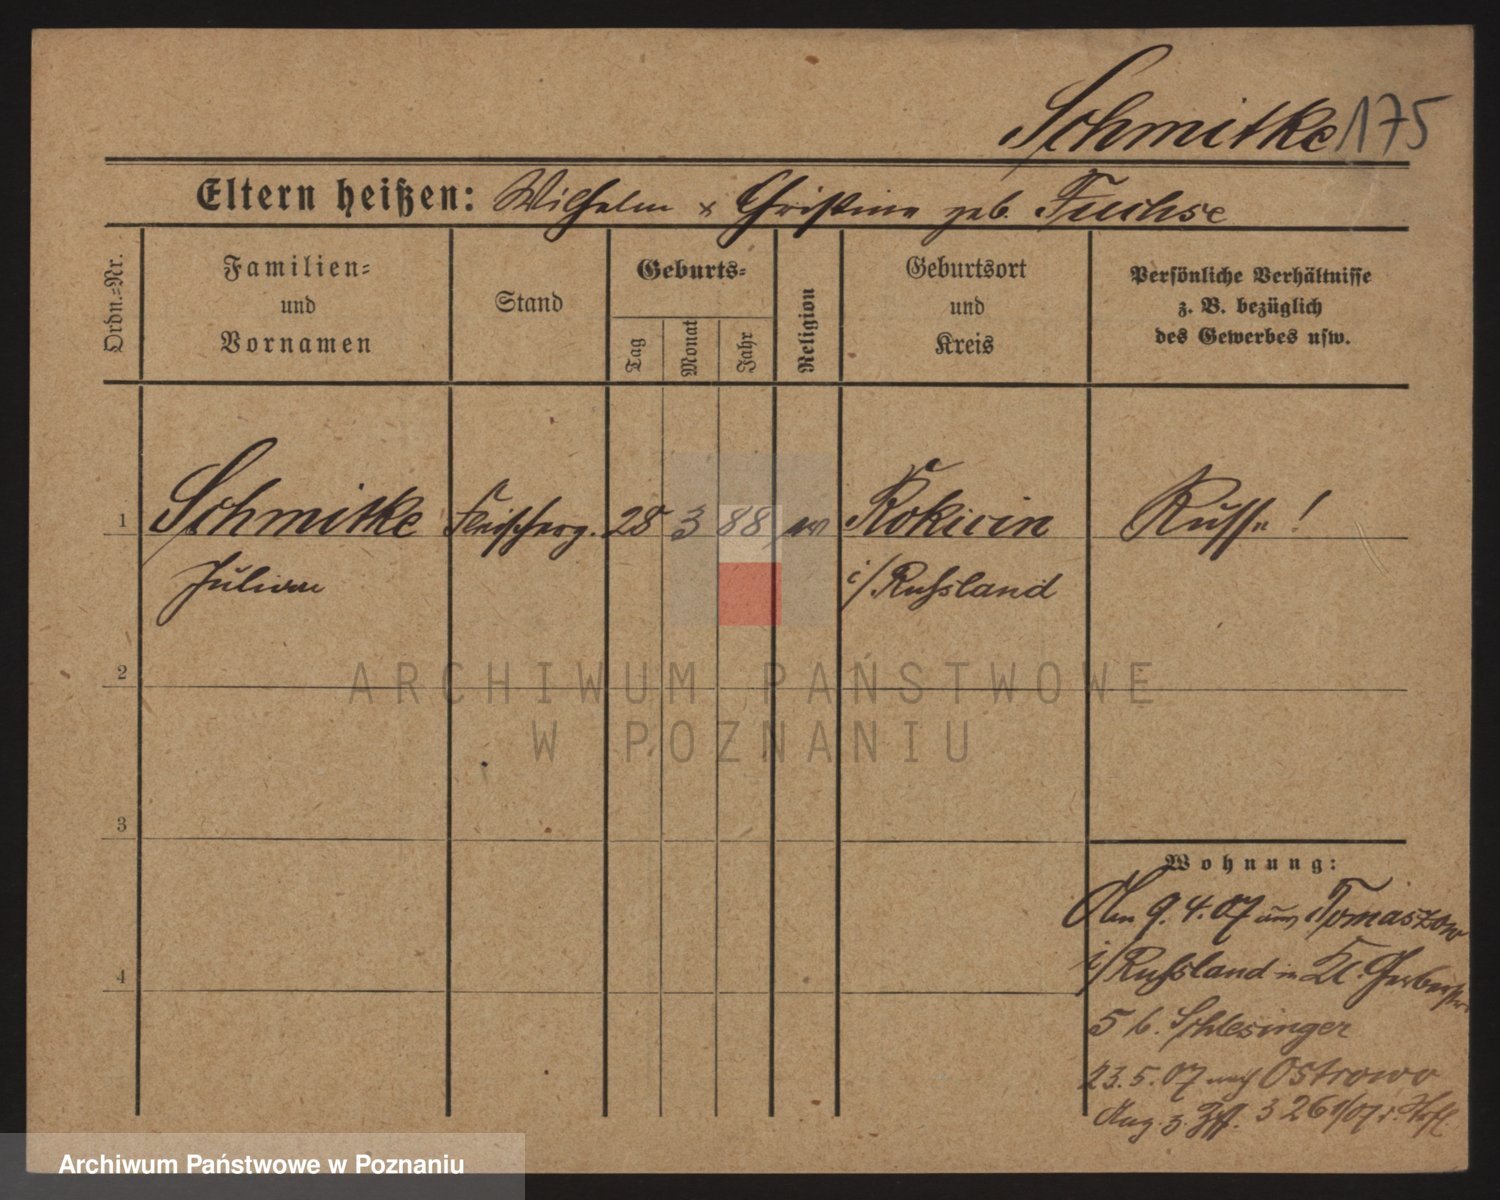 Schmitke 175
Eltern heißen: Wilhelm x Christine geb. Fuchse
Ordn.=Nr.
Familien=
und
Vornamen
Stand
Geburts=
Tag
Monat
Jahr
Religion
Geburtsort
und
Kreis
Persönliche Verhältnisse
z. B. bezüglich
des Gewerbes usw.
1 Schmitke Fleischerg. 28 3 88 ev Rokicin Russe!
Julian i/Russland
2
3
4
Wohnung:
Am 9.4.07 aus Tomaszow
i/Russland in Kl. Gerberstr
5 b. Schlesinger
23.5.07 nach Ostrowo
Aug. 3 261/07
ARCHIWUM PAŃSTWOWE
W POZNANIU
Archiwum Państwowe w Poznaniu